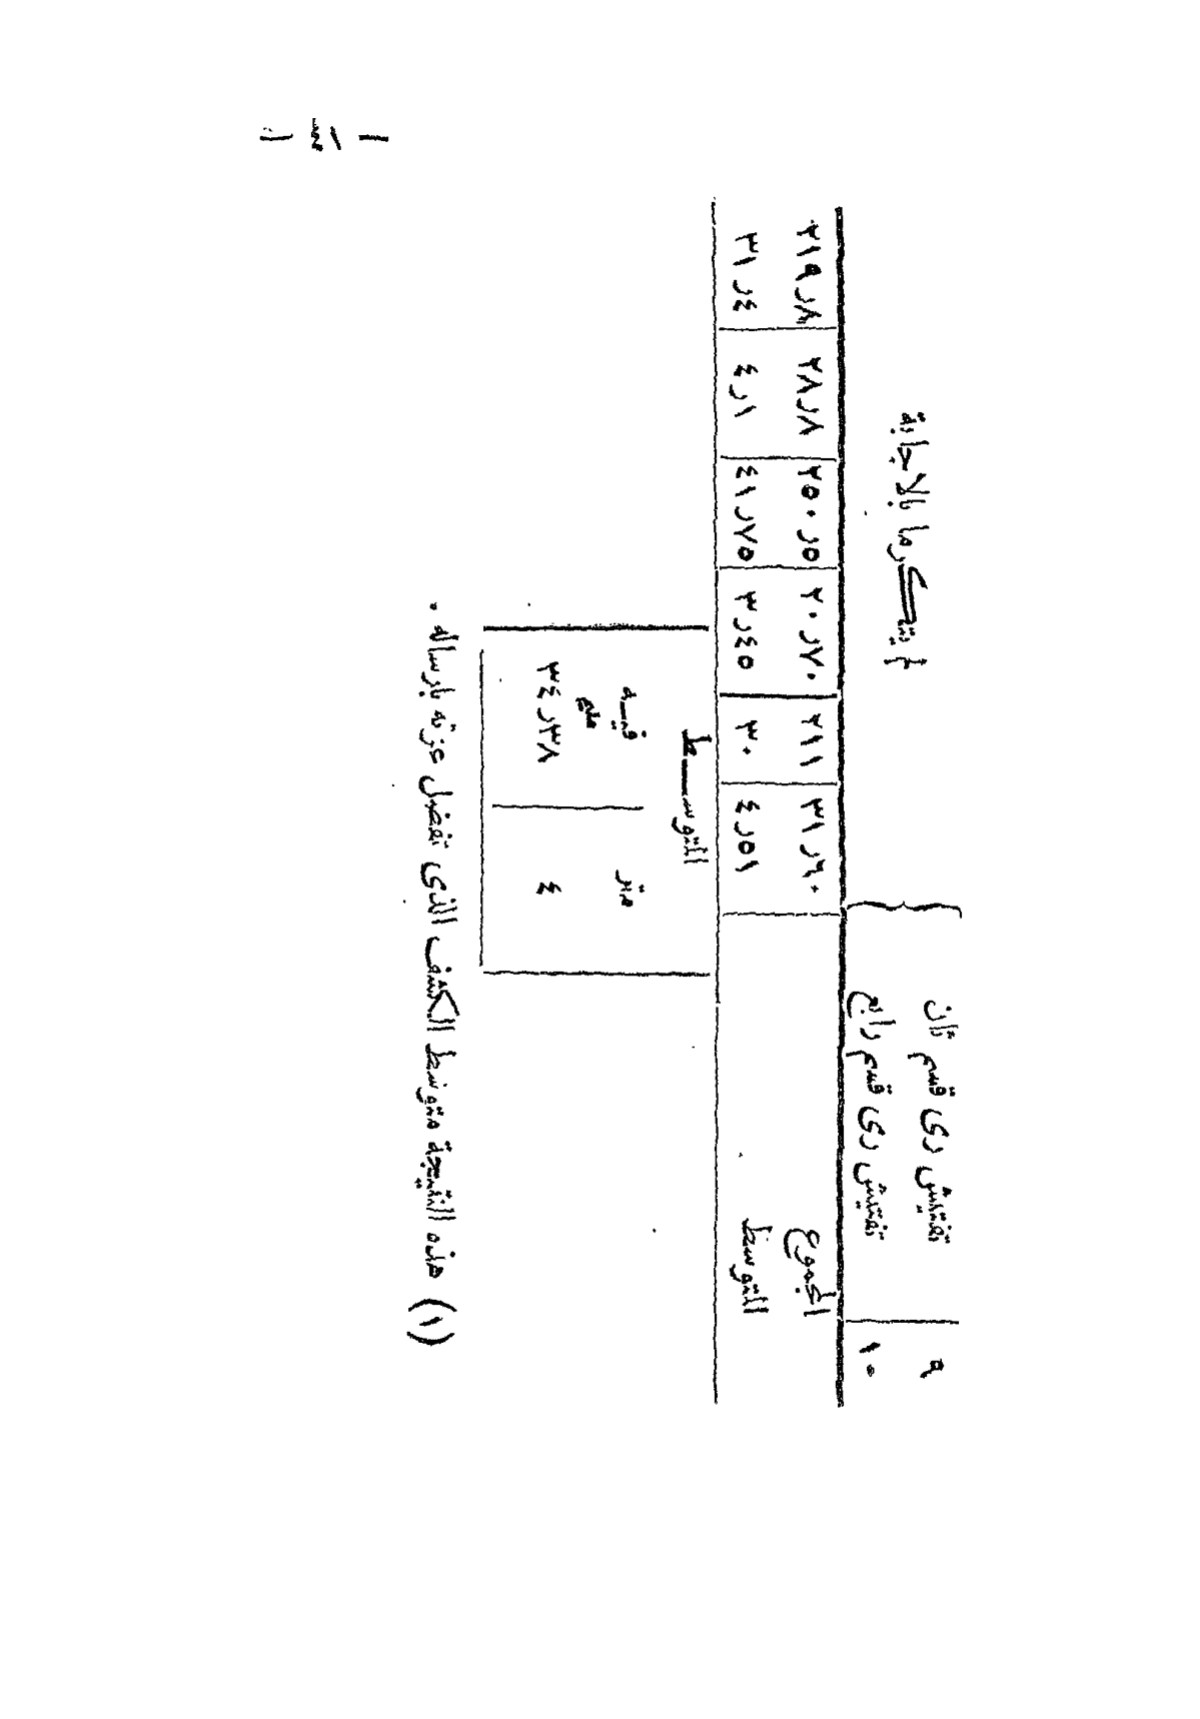 — ٤١ —
٩ تفتيش رى قسم ثان
١٠ تفتيش رى قسم رابع
لم يتكرما بالاجابة
المجموع ٣١ر٦٠ ٢١١ ٢٠ر٧٠ ٢٥٠ر٥ ٢٨ر٨ ٢١٩ر٨
المتوسط ٤ر٥١ ٣٠ ٣ر٤٥ ٤١ر٧٥ ٤ر١ ٣١ر٤
المتوسط
متر قيمه
مليم
٤ ٣٤ر٣٨
(١) هذه النتيجة متوسط الكشف الذى تفضل عزته بارساله .